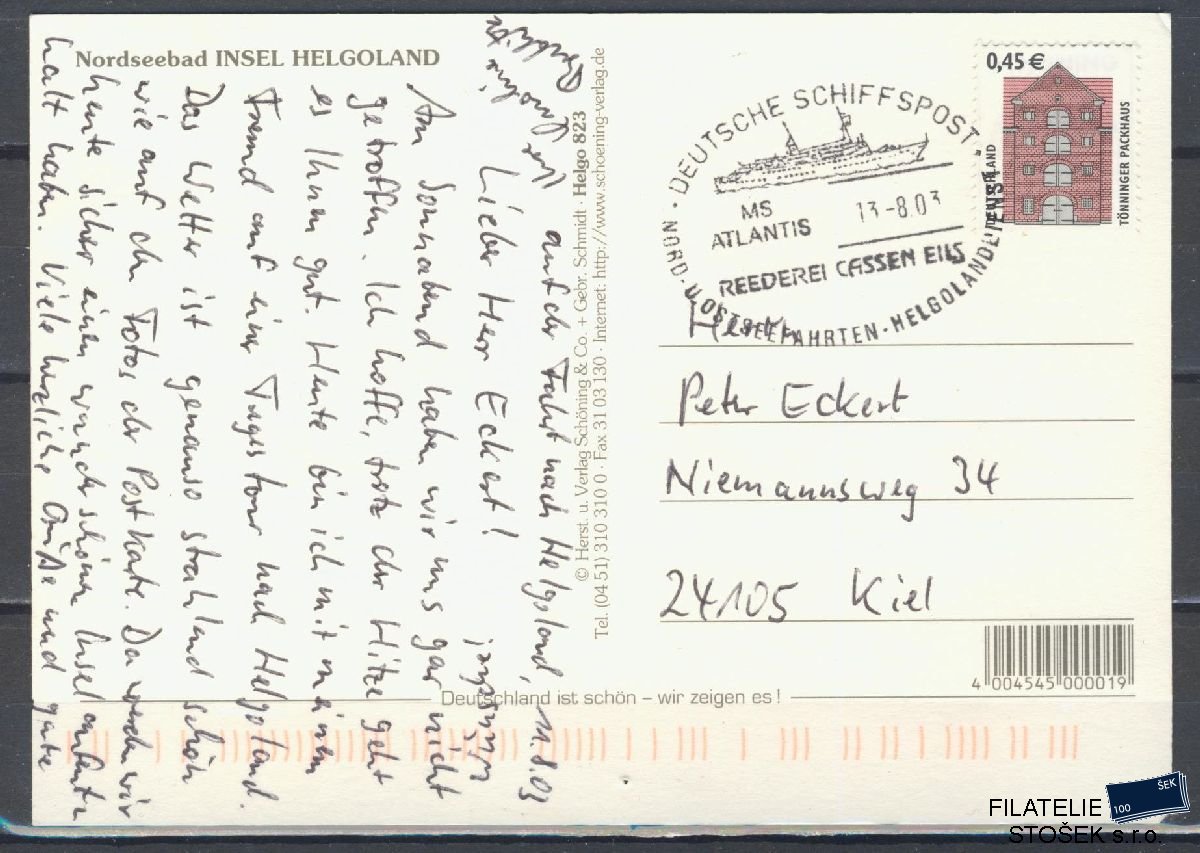 Nordseebad INSEL HELGOLAND
auf der Fahrt nach Helgoland, 11.8.03
Lieber Herr Eckert!
Am Sonnabend haben wir uns gar nicht
getroffen. Ich hoffe, trotz der Hitze geht
es Ihnen gut. Heute bin ich mit meinem
Freund auf einer Tagestour nach Helgoland.
Das Wetter ist genauso strahlend schön
wie auf den Fotos der Postkarte. Da werden wir
heute sicher einen wunderschönen Inselaufent-
halt haben. Viele herzliche Grüße und gute
Wünsche!
Ihr
© Herst. u. Verlag Schöning & Co. + Gebr. Schmidt · Helgo 823
Tel. (04 51) 310 310 0 · Fax 31 03 130 · Internet: http://www.schoening-verlag.de
0,45 €
DEUTSCHLAND
TÖNNINGER PACKHAUS
· DEUTSCHE SCHIFFSPOST ·
MS
ATLANTIS
13-8.03
REEDEREI CASSEN EILS
NORD- U. OSTSEEFAHRTEN · HELGOLANDDIENST
Herrn
Peter Eckert
Niemannsweg 34
24105 Kiel
4 004545 000019
Deutschland ist schön – wir zeigen es !
100 ŠEK
FILATELIE
STOŠEK s.r.o.